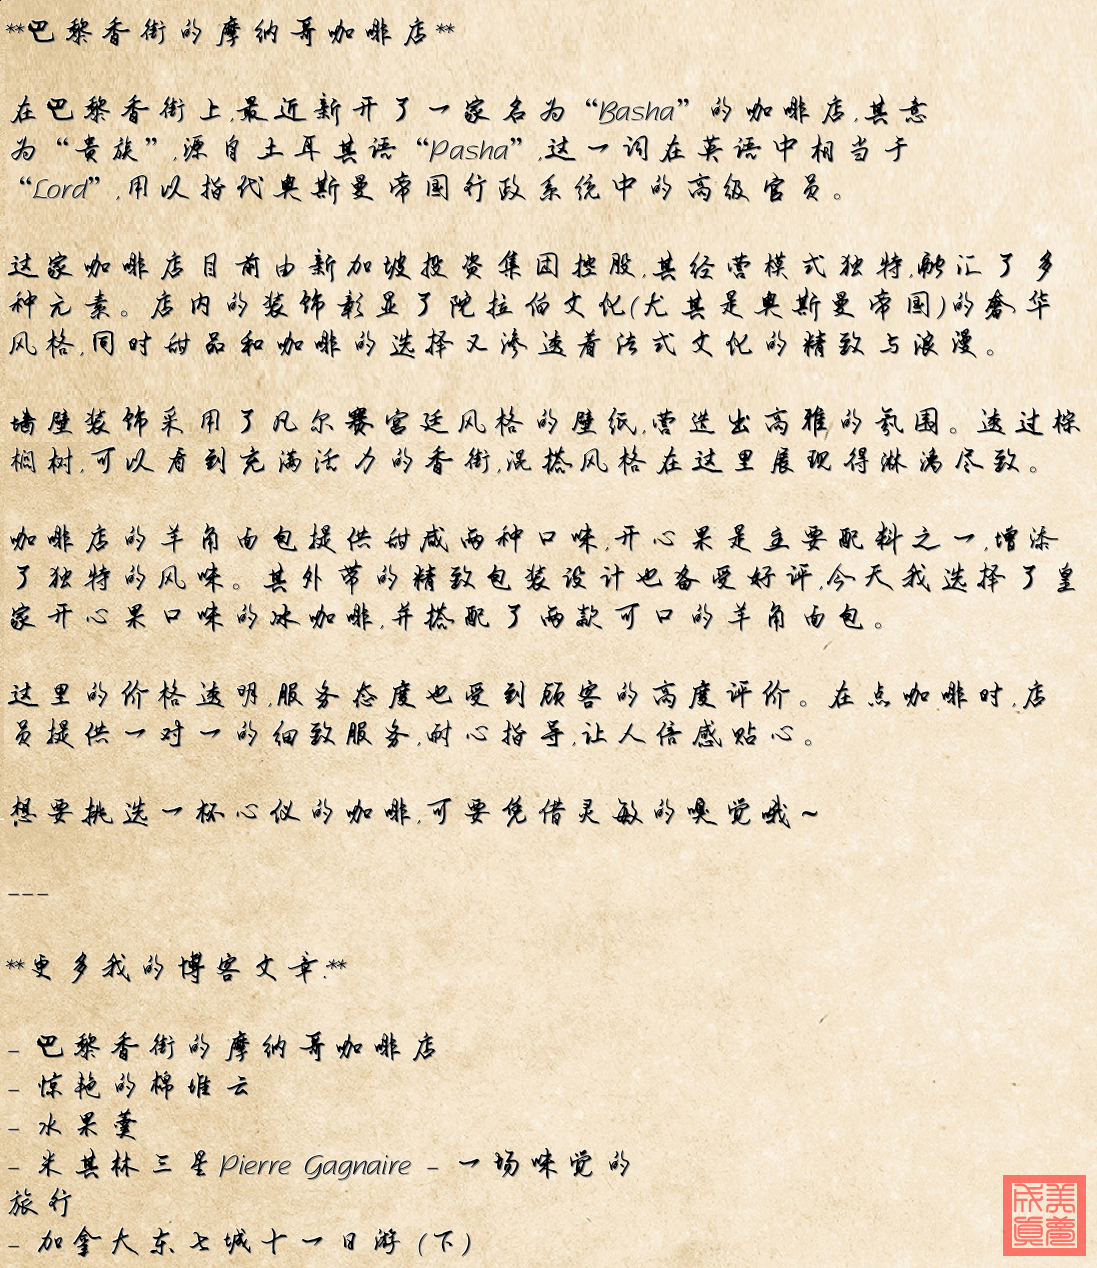 **巴黎香街的摩纳哥咖啡店**
在巴黎香街上,最近新开了一家名为“Basha”的咖啡店,其意
为“贵族”,源自土耳其语“Pasha”,这一词在英语中相当于
“Lord”,用以指代奥斯曼帝国行政系统中的高级官员。
这家咖啡店目前由新加坡投资集团控股,其经营模式独特,融汇了多
种元素。店内的装饰彰显了阿拉伯文化(尤其是奥斯曼帝国)的奢华
风格,同时甜品和咖啡的选择又渗透着法式文化的精致与浪漫。
墙壁装饰采用了凡尔赛宫廷风格的壁纸,营造出高雅的氛围。透过棕
榈树,可以看到充满活力的香街,混搭风格在这里展现得淋漓尽致。
咖啡店的羊角面包提供甜咸两种口味,开心果是主要配料之一,增添
了独特的风味。其外带的精致包装设计也备受好评,今天我选择了皇
家开心果口味的冰咖啡,并搭配了两款可口的羊角面包。
这里的价格透明,服务态度也受到顾客的高度评价。在点咖啡时,店
员提供一对一的细致服务,耐心指导,让人倍感贴心。
想要挑选一杯心仪的咖啡,可要凭借灵敏的嗅觉哦~
---
**更多我的博客文章:**
- 巴黎香街的摩纳哥咖啡店
- 惊艳的棉堆云
- 水果羹
- 米其林三星Pierre Gagnaire - 一场味觉的
旅行
- 加拿大东七城十一日游 (下)
美梦成真